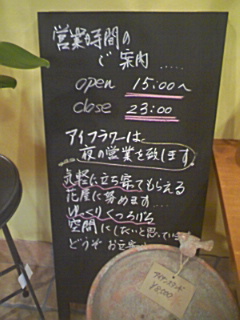 営業時間の
ご案内.....
open 15:00〜
close 23:00
アイフラワーは
夜の営業を致します。
気軽に立ち寄ってもらえる
花屋に努めます
ゆっくりくつろげる
空間にしたいと思っています
どうぞ お立寄
¥8,000